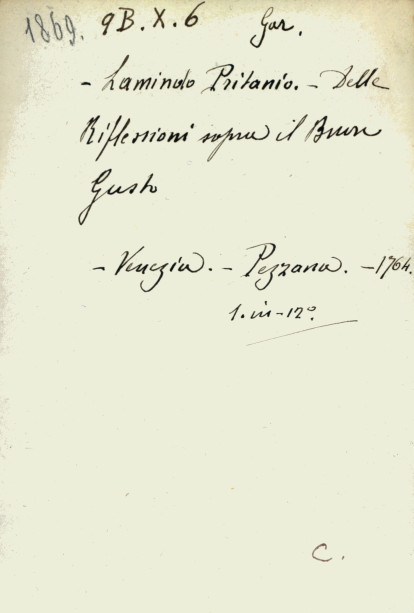 1869. 9B.X.6 Gar.
- Lamindo Pritanio. - Delle
Riflessioni sopra il Buon
Gusto
- Venezia. - Pezzana. - 1764.
1. in-12°.
C.